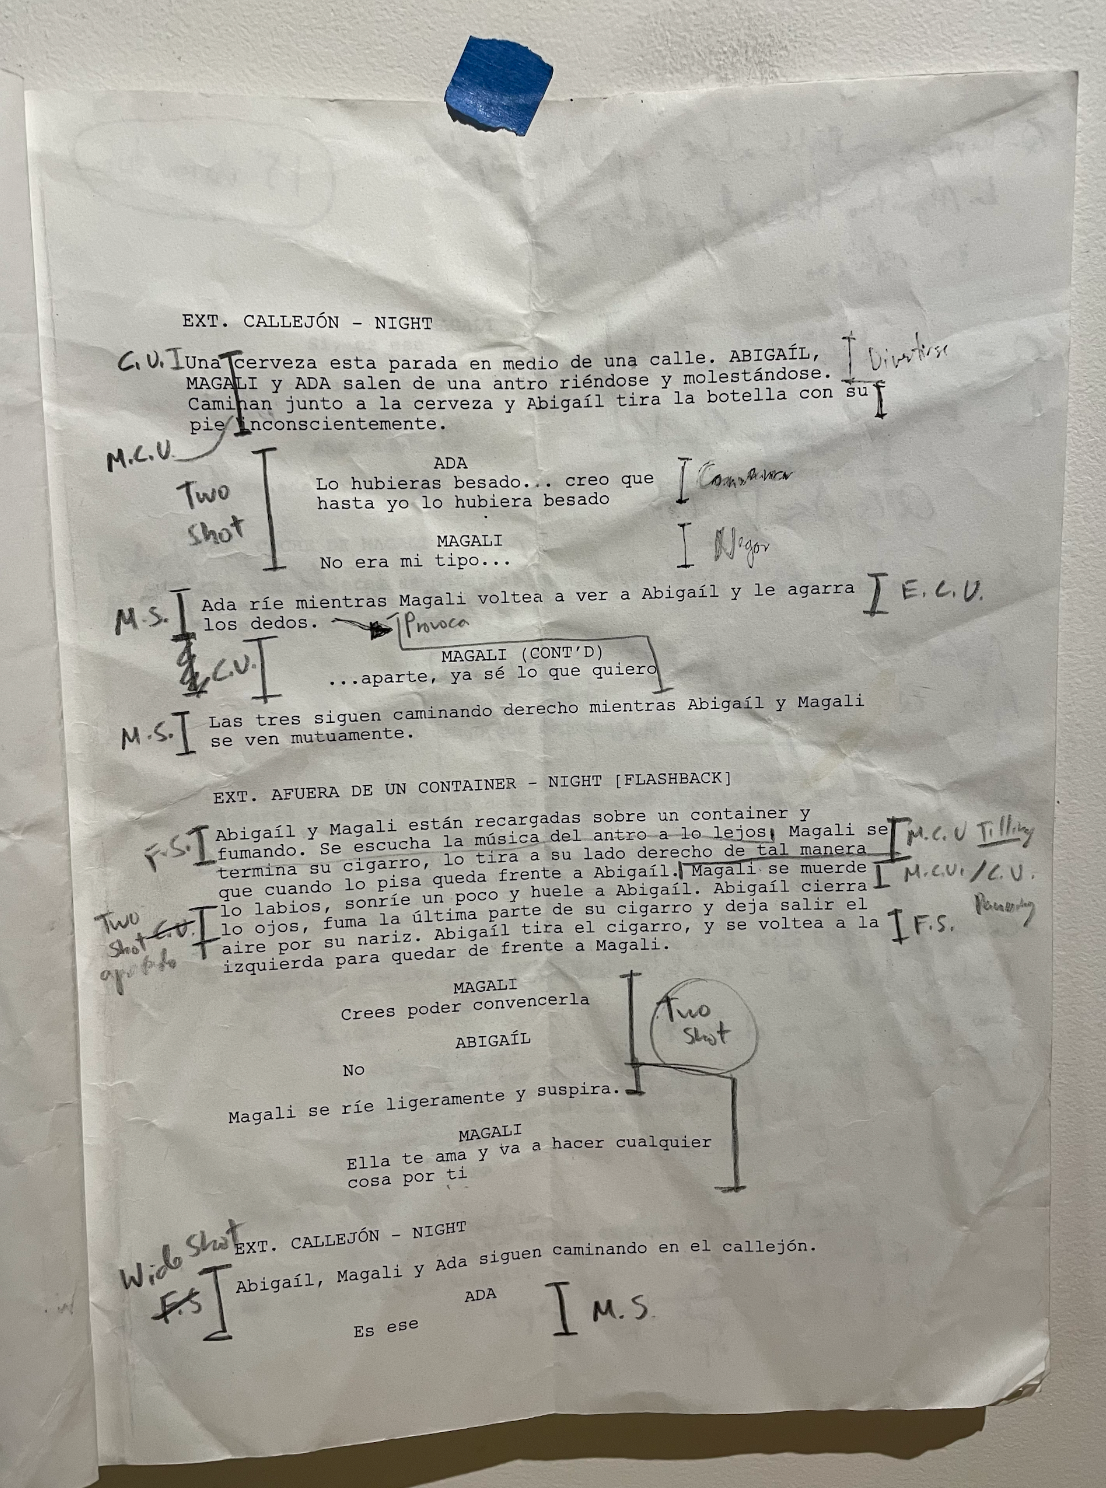 EXT. CALLEJÓN - NIGHT
C.U. Una cerveza esta parada en medio de una calle. ABIGAÍL, Divertirse
MAGALI y ADA salen de una antro riéndose y molestándose.
Caminan junto a la cerveza y Abigaíl tira la botella con su
pie inconscientemente.
M.C.U.
ADA
Two Shot
Lo hubieras besado... creo que
hasta yo lo hubiera besado
MAGALI
No era mi tipo... Negar
M.S. Ada ríe mientras Magali voltea a ver a Abigaíl y le agarra E.C.U.
los dedos. Provoca
MAGALI (CONT'D)
C.U. ...aparte, ya sé lo que quiero
M.S. Las tres siguen caminando derecho mientras Abigaíl y Magali
se ven mutuamente.
EXT. AFUERA DE UN CONTAINER - NIGHT [FLASHBACK]
Abigaíl y Magali están recargadas sobre un container y
F.S. fumando. Se escucha la música del antro a lo lejos, Magali se M.C.U Tilling
termina su cigarro, lo tira a su lado derecho de tal manera
que cuando lo pisa queda frente a Abigaíl. Magali se muerde M.C.U. / C.U.
lo labios, sonríe un poco y huele a Abigaíl. Abigaíl cierra
Two Shot C.U. apretado
lo ojos, fuma la última parte de su cigarro y deja salir el
aire por su nariz. Abigaíl tira el cigarro, y se voltea a la F.S.
izquierda para quedar de frente a Magali.
MAGALI
Crees poder convencerla Two Shot
ABIGAÍL
No
Magali se ríe ligeramente y suspira.
MAGALI
Ella te ama y va a hacer cualquier
cosa por ti
Wide Shot EXT. CALLEJÓN - NIGHT
F.S Abigaíl, Magali y Ada siguen caminando en el callejón.
ADA
Es ese M.S.